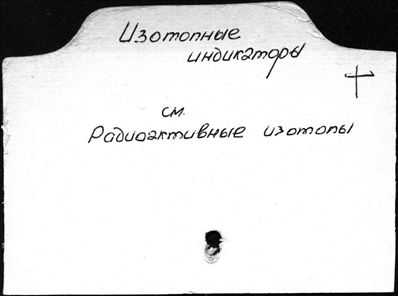 Изотопные
индикаторы
см.
Радиоактивные изотопы